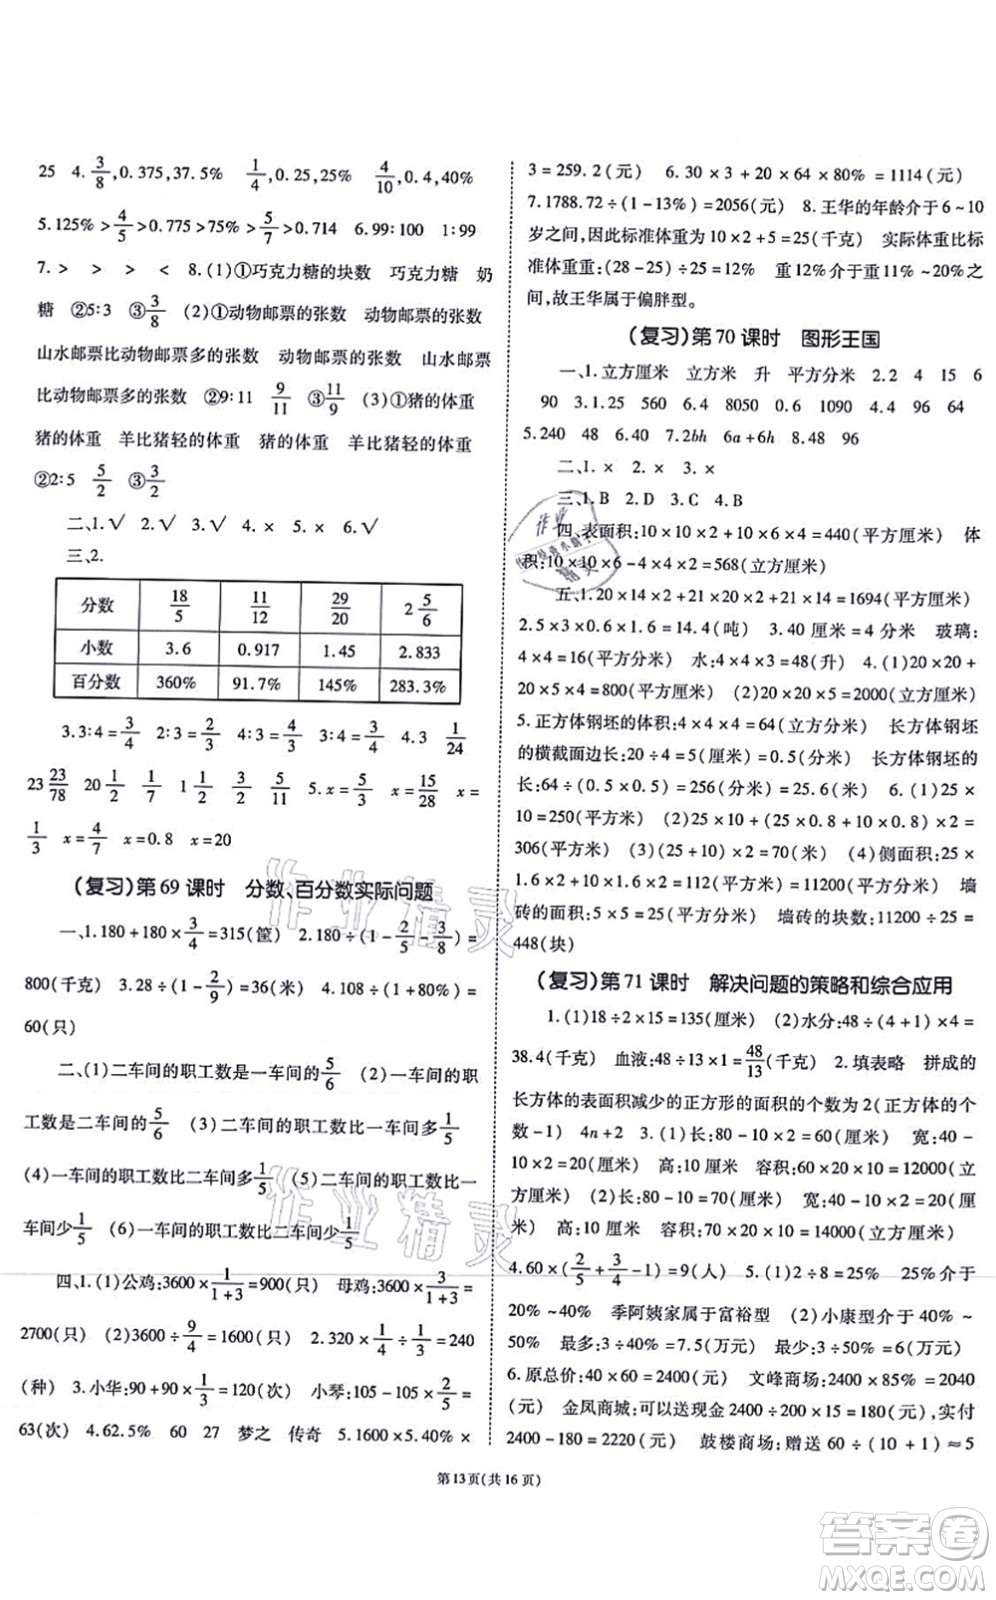 25 4. 3/8, 0.375, 37.5% 1/4, 0.25, 25% 4/10, 0.4, 40%
5. 125% > 4/5 > 0.775 > 75% > 5/7 > 0.714 6. 99∶100 1∶99
7. > > > < 8. (1)①巧克力糖的块数 巧克力糖 奶
糖 ②5∶3 ③3/8 (2)①动物邮票的张数 动物邮票的张数
山水邮票比动物邮票多的张数 动物邮票的张数 山水邮票
比动物邮票多的张数 ②9∶11 9/11 ③11/9 (3)①猪的体重
猪的体重 羊比猪轻的体重 猪的体重 羊比猪轻的体重
②2∶5 5/2 ③3/2
二、1. √ 2. √ 3. √ 4. × 5. × 6. √
三、2.
分数 18/5 11/12 29/20 2 5/6
小数 3.6 0.917 1.45 2.833
百分数 360% 91.7% 145% 283.3%
3. 3∶4 = 3/4 2∶3 = 2/3 3∶4 = 3/4 4. 3 1/24
23 23/78 20 1/2 1/9 1/2 5/11 5. x = 5/3 x = 15/28 x =
1/3 x = 4/7 x = 0.8 x = 20
(复习)第 69 课时 分数、百分数实际问题
一、1. 180 + 180 × 3/4 = 315(筐) 2. 180 ÷ (1 - 2/5 - 3/8) =
800(千克) 3. 28 ÷ (1 - 2/9) = 36(米) 4. 108 ÷ (1 + 80%) =
60(只)
二、(1)二车间的职工数是一车间的 5/6 (2)一车间的职
工数是二车间的 5/6 (3)二车间的职工数比一车间多 1/5
(4)一车间的职工数比二车间多 1/5 (5)二车间的职工数比一
车间少 1/5 (6)一车间的职工数比二车间少 1/5
四、1. (1)公鸡:3600 × 1/(1+3) = 900(只) 母鸡:3600 × 3/(1+3) =
2700(只) (2)3600 ÷ 9/4 = 1600(只) 2. 320 × 1/4 ÷ 1/3 = 240
(种) 3. 小华:90 + 90 × 1/3 = 120(次) 小琴:105 - 105 × 2/5 =
63(次) 4. 62.5% 60 27 梦之 传奇 5. 1600 × 5.40% ×
3 = 259.2(元) 6. 30 × 3 + 20 × 64 × 80% = 1114(元)
7. 1788.72 ÷ (1 - 13%) = 2056(元) 8. 王华的年龄介于 6 ~ 10
岁之间,因此标准体重为 10 × 2 + 5 = 25(千克) 实际体重比标
准体重重:(28 - 25) ÷ 25 = 12% 重 12% 介于 11% ~ 20% 之
间,故王华属于偏胖型。
(复习)第 70 课时 图形王国
一、1. 立方厘米 立方米 升 平方分米 2. 2 4 15 6
90 3. 1.25 560 6.4 8050 0.802 1090 4. 4 96 64
5. 240 48 6. 40 7. 2bh 6a + 6h 8. 48 96
二、1. × 2. × 3. ×
三、1. B 2. D 3. C 4. B
四、表面积:10 × 10 × 2 + 10 × 6 × 4 = 440(平方厘米) 体
积:10 × 10 × 6 - 4 × 4 × 2 = 568(立方厘米)
五、1. 20 × 14 × 2 + 21 × 14 × 2 + 20 × 21 = 1694(平方厘米)
2. 5 × 3 × 0.6 × 1.6 = 14.4(吨) 3. 40 厘米 = 4 分米 玻璃:
4 × 4 = 16(平方分米) 水:4 × 4 × 3 = 48(升) 4. (1)20 × 20 +
20 × 5 × 4 = 800(平方厘米) (2)20 × 20 × 5 = 2000(立方厘米)
5. 正方体钢坯的体积:4 × 4 × 4 = 64(立方分米) 长方体钢坯
的横截面边长:20 ÷ 4 = 5(厘米) = 0.5(分米) 长方体钢坯的
长:64 ÷ (0.5 × 0.5) = 256(分米) = 25.6(米) 6. (1)25 ×
10 = 250(平方米) (2)25 × 10 + (25 × 0.8 + 10 × 0.8) × 2 =
306(平方米) (3)25 × 10 × 0.8 = 200(立方米) (4)侧面积:25 ×
1.6 × 2 + 10 × 1.6 × 2 = 112(平方米) = 11200(平方分米) 墙
砖的面积:5 × 5 = 25(平方分米) 墙砖的块数:11200 ÷ 25 =
448(块)
(复习)第 71 课时 解决问题的策略和综合应用
1. (1)18 ÷ 2 × 15 = 135(厘米) (2)水分:48 ÷ (4 + 1) × 4 =
38.4(千克) 血液:48 ÷ 13 × 1 = 48/13(千克) 2. 填表略 拼成的
长方体的表面积减少的正方形的面积的个数为 2(正方体的个
数 - 1) 4n + 2 3. (1)长:80 - 10 × 2 = 60(厘米) 宽:40 - 10 ×
2 = 20(厘米) 高:10 厘米 容积:60 × 20 × 10 = 12000(立
方厘米) (2)长:80 - 10 = 70(厘米) 宽:40 - 10 × 2 = 20(厘
米) 高:10 厘米 容积:70 × 20 × 10 = 14000(立方厘米)
4. 60 × (2/5 + 3/4 - 1) = 9(人) 5. (1)2 ÷ 8 = 25% 25% 介于
20% ~ 40% 季阿姨家属于富裕型 (2)小康型介于 40% ~
50% 最多:3 ÷ 40% = 7.5(万元) 最少:3 ÷ 50% = 6(万元)
6. 原总价:40 × 60 = 2400(元) 文峰商场:2400 × 85% = 2040
(元) 金凤商城:可以兑现金 2400 × 30% = 720(元),实付
2400 - 180 = 2220(元) 鼓楼商场:赠送 60 ÷ (10 + 1) ≈ 5
第 13 页(共 16 页)
作业精灵
作业精灵
答案卷
MXQE.COM